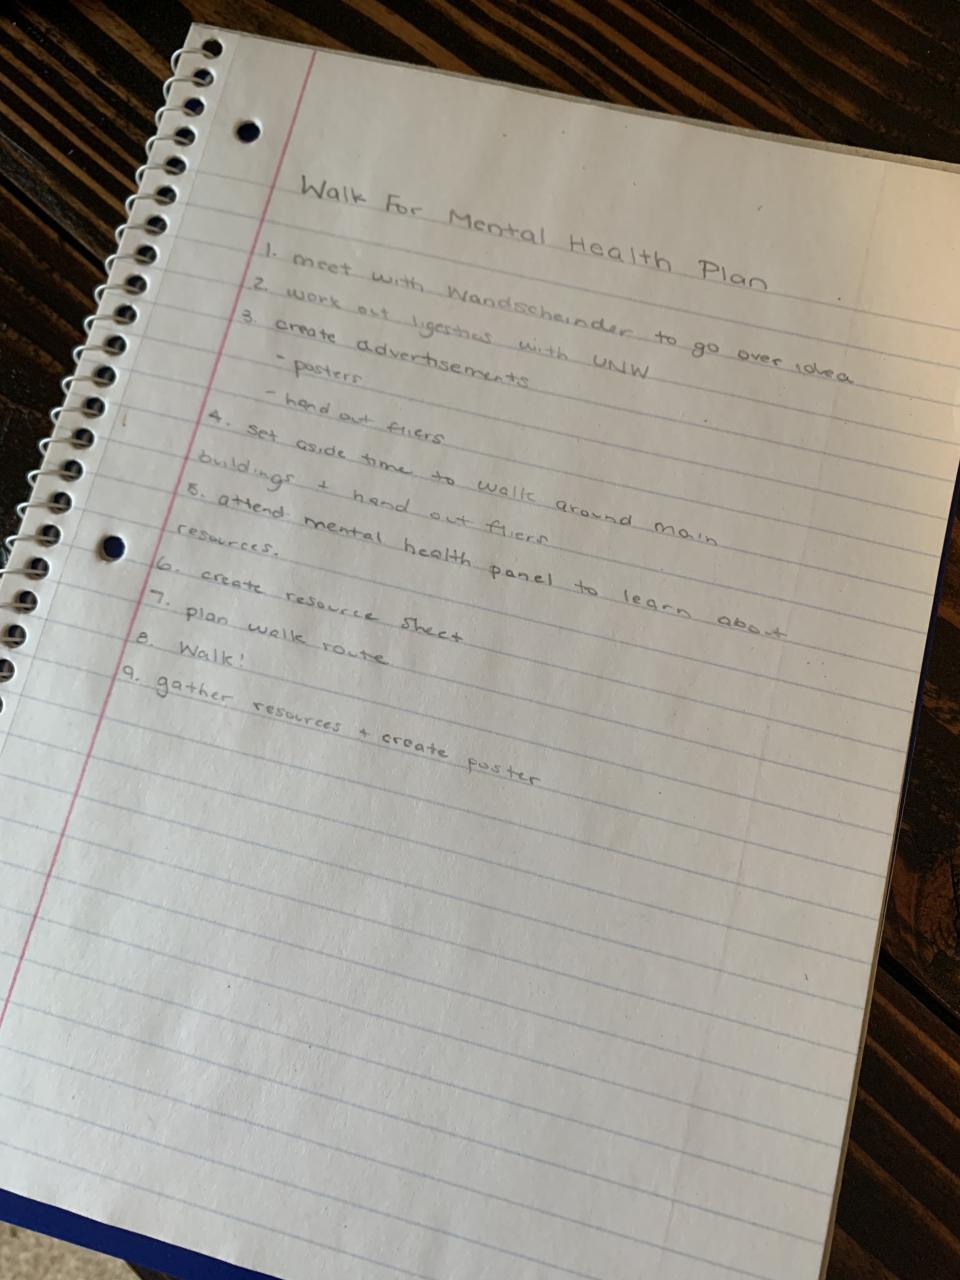 Walk For Mental Health Plan
1. meet with Wandscheinder to go over idea
2. work out ligestics with UNW
3. create advertisements
- posters
- hand out fliers
4. set aside time to walk around main
buildings + hand out fliers
5. attend mental health panel to learn about
resources.
6. create resource sheet
7. plan walk route
8. Walk!
9. gather resources + create poster